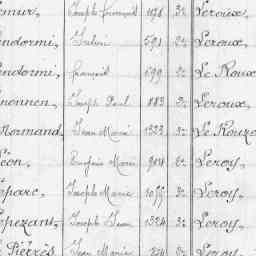 emur, Joseph François 1076 3e Leroux,
endormi, Julien 591 2e Leroux,
endormi, François 699 3e Le Roux
énonnen, Joseph Paul 883 3e Leroux,
Normand, Jean Marie 1323 3e Le Rouzo
Léon, Eugène Marie 904 6e Leroy,
éparc, Joseph Marie 1077 3e Leroy,
épezant, Joseph Jean 1324 3e Leroy,
e Pierrès Jean Marie 3e Leroy,